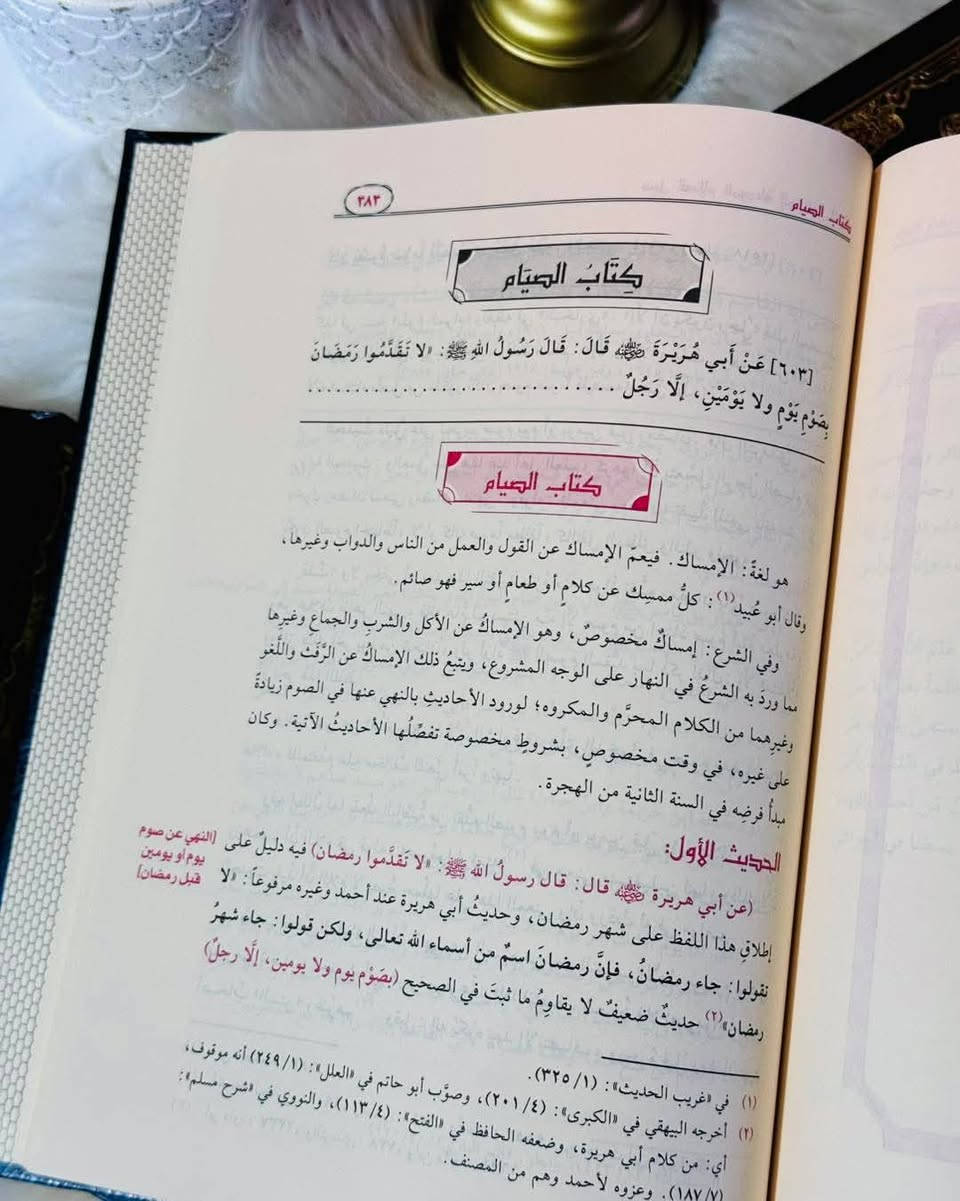 كتاب الصيام
٣٨٣
كِتَابُ الصيَام
[٦٠٣] عَنْ أَبي هُرَيْرَةَ ﵁ قَالَ: قَالَ رَسُولُ اللهِ ﷺ: «لا تَقَدَّمُوا رَمَضَانَ
بِصَوْمِ يَوْمٍ ولا يَوْمَيْنِ، إلَّا رَجُلٌ ..............................
كتاب الصيام
هو لغةً: الإمساك. فيعمّ الإمساك عن القول والعمل من الناس والدواب وغيرها،
وقال أبو عُبيد(١): كلُّ ممسِك عن كلامٍ أو طعامٍ أو سير فهو صائم.
وفي الشرع: إمساكٌ مخصوصٌ، وهو الإمساكُ عن الأكل والشربِ والجماعِ وغيرها
مما وردَ به الشرعُ في النهار على الوجه المشروع، ويتبعُ ذلك الإمساكُ عن الرَّفَثِ واللَّغو
وغيرِهما من الكلام المحرَّم والمكروه؛ لورود الأحاديثِ بالنهي عنها في الصوم زيادةً
على غيره، في وقت مخصوصٍ، بشروطٍ مخصوصة تفصِّلُها الأحاديثُ الآتية. وكان
مبدأُ فرضِه في السنة الثانية من الهجرة.
الحديث الأول:
(عن أبي هريرة ﵁ قال: قال رسولُ الله ﷺ: «لا تَقدَّموا رمضان) فيه دليلٌ على
إطلاقِ هذا اللفظ على شهر رمضان، وحديثُ أبي هريرة عند أحمد وغيره مرفوعاً: «لا
تقولوا: جاء رمضانُ، فإنَّ رمضانَ اسمٌ من أسماء الله تعالى، ولكن قولوا: جاء شهرُ
رمضان»(٢) حديثٌ ضعيفٌ لا يقاومُ ما ثبتَ في الصحيح (بصَوْم يوم ولا يومين، إلَّا رجلٌ)
[النهي عن صوم
يوم أو يومين
قبل رمضان]
(١) في «غريب الحديث»: (١/ ٣٢٥).
(٢) أخرجه البيهقي في «الكبرى»: (٤/ ٢٠١)، وصوَّب أبو حاتم في «العلل»: (١/ ٢٤٩) أنه موقوف،
أي: من كلام أبي هريرة، وضعفه الحافظ في «الفتح»: (٤/ ١١٣)، والنووي في «شرح مسلم»:
(٧/ ١٨٧). وعزوه لأحمد وهم من المصنف.